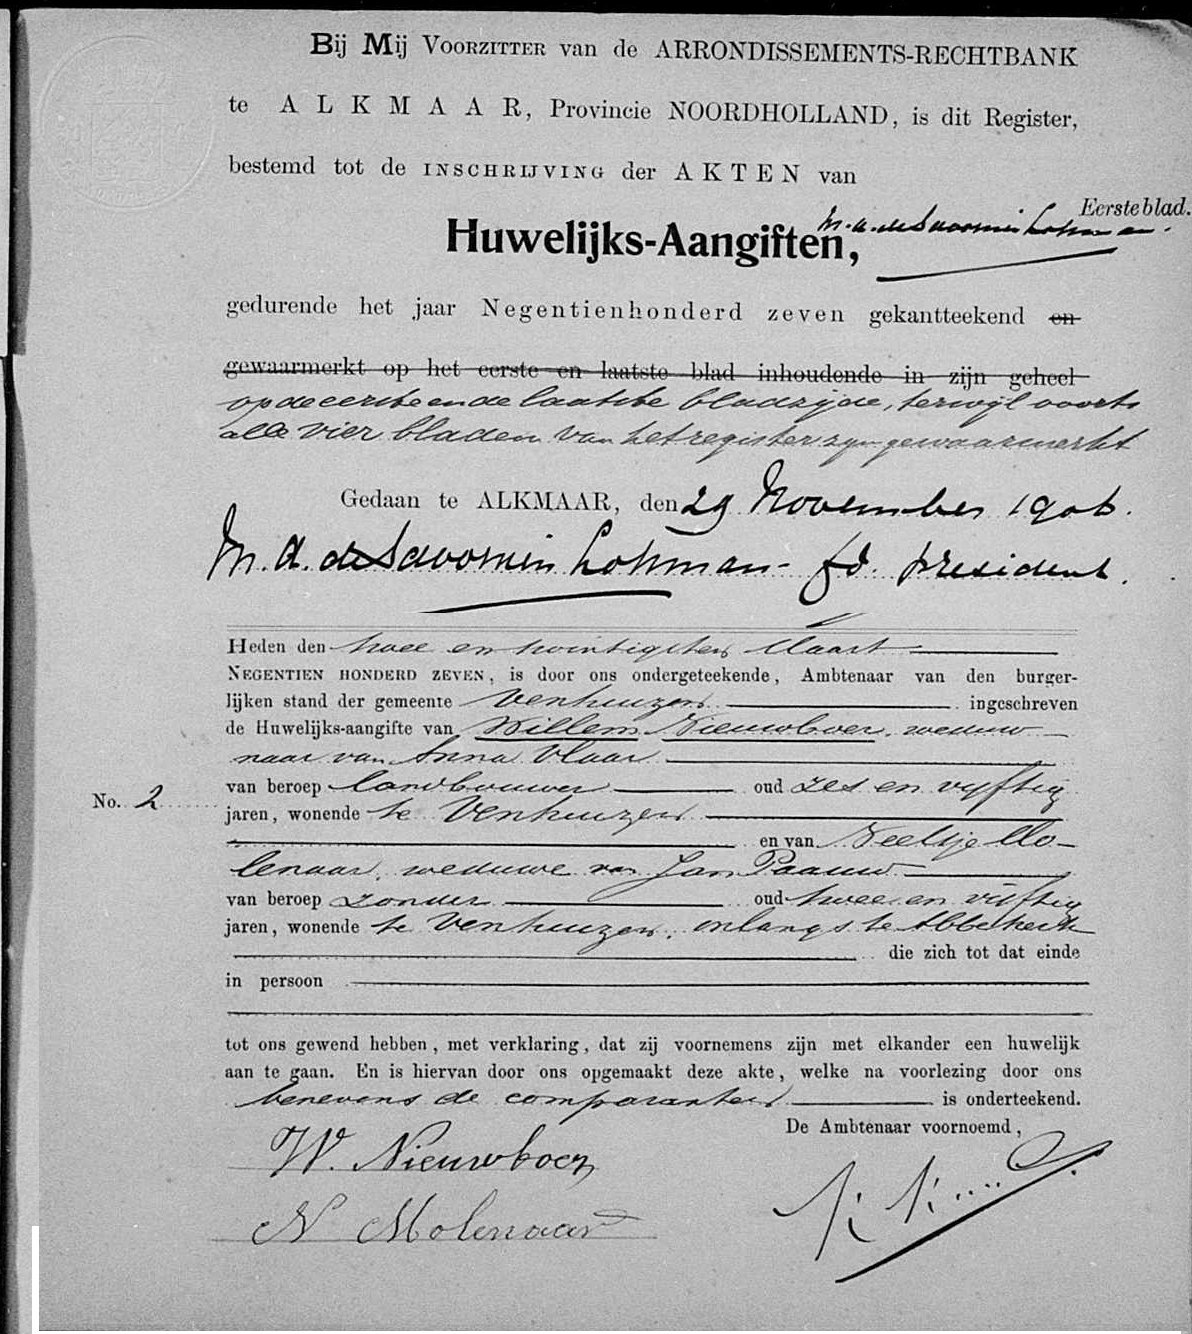 Bij Mij Voorzitter van de ARRONDISSEMENTS-RECHTBANK
te ALKMAAR, Provincie NOORDHOLLAND, is dit Register,
bestemd tot de INSCHRIJVING der AKTEN van
Eerste blad.
M. A. de Savornin Lohman.
Huwelijks-Aangiften,
gedurende het jaar Negentienhonderd zeven gekantteekend en
gewaarmerkt op het eerste en laatste blad inhoudende in zijn geheel
op de eerste en de laatste bladzijde, terwijl voorts
alle vier bladen van het register zijn gewaarmerkt
Gedaan te ALKMAAR, den 29 November 1906.
M. A. de Savornin Lohman fd. president.
Heden den twee en twintigsten Maart
Negentien honderd zeven, is door ons ondergeteekende, Ambtenaar van den burger-
lijken stand der gemeente Venhuizen ingeschreven
de Huwelijks-aangifte van Willem Nieuwboer, weduw-
naar van Anna Vlaar
van beroep landbouwer oud zes en vyftig
No. 2
jaren, wonende te Venhuizen
en van Neeltje Mo-
lenaar, weduwe van Jan Paauw
van beroep zonder oud twee en vijftig
jaren, wonende te Venhuizen, onlangs te Abbekerk
die zich tot dat einde
in persoon
tot ons gewend hebben, met verklaring, dat zij voornemens zijn met elkander een huwelijk
aan te gaan. En is hiervan door ons opgemaakt deze akte, welke na voorlezing door ons
benevens de comparanten is onderteekend.
De Ambtenaar voornoemd,
W. Nieuwboer
N Molenaar